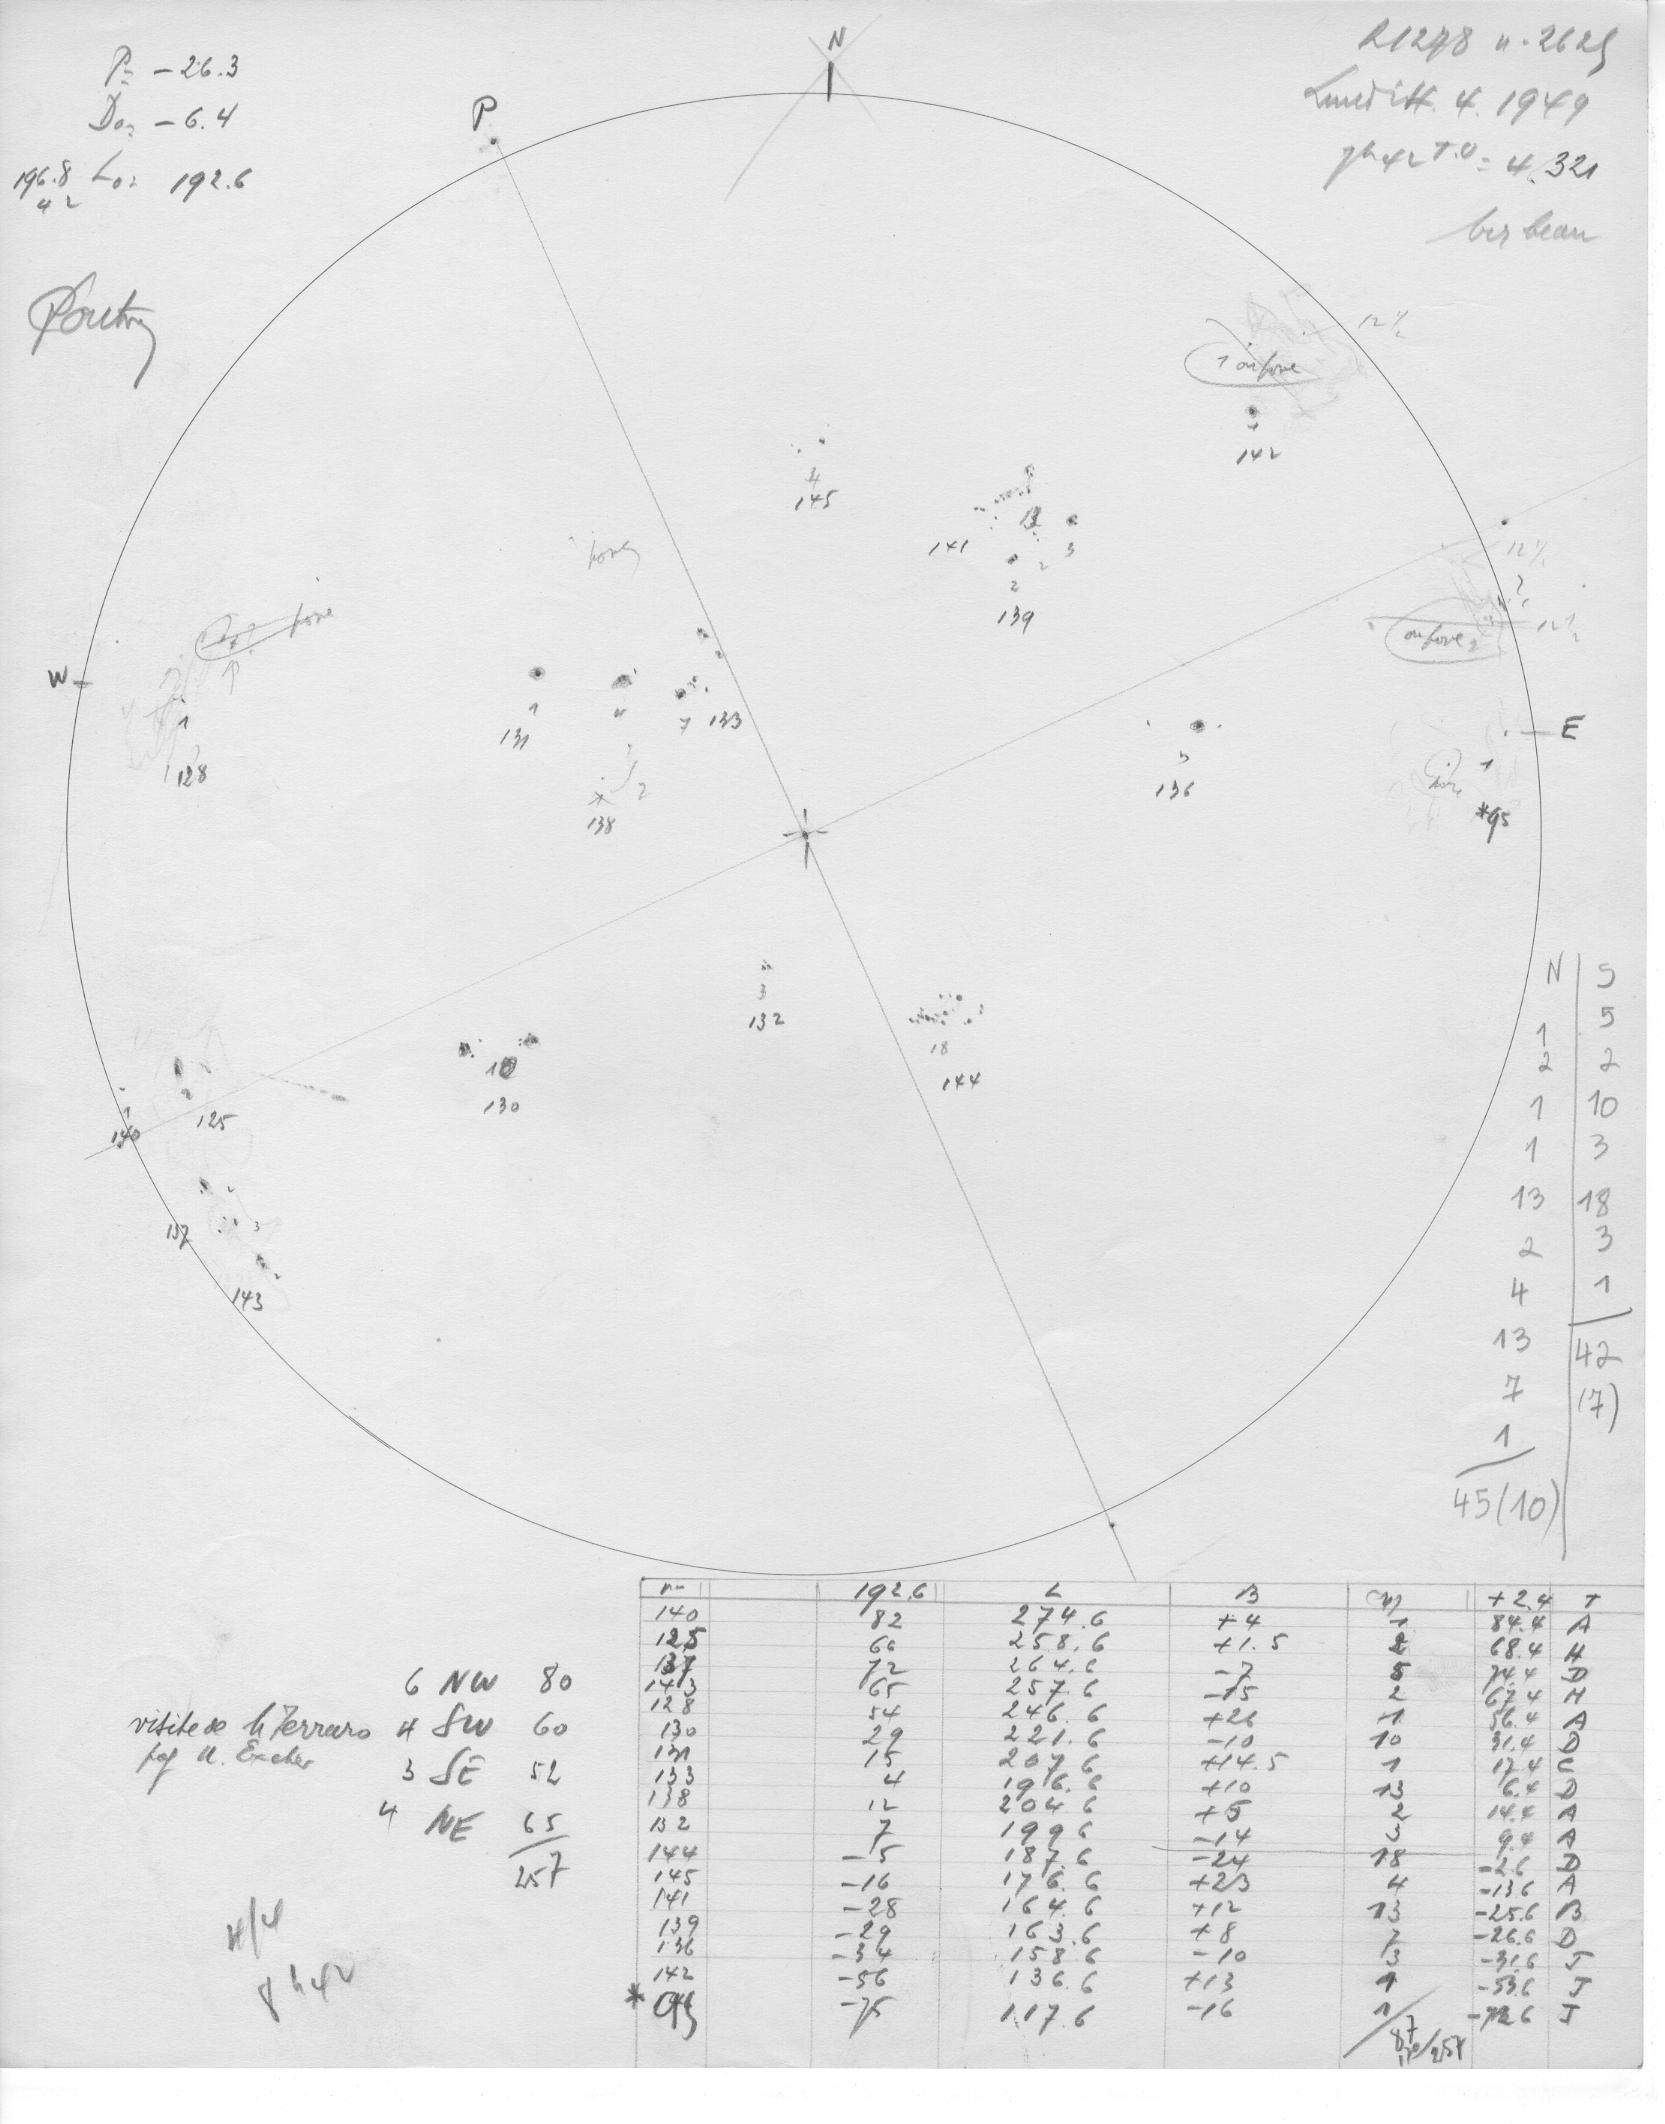 P= -26.3
Do= -6.4
196.8 Lo= 192.6
42
P
N
R1278 n. 2625
Lundi 4. 4. 1949
7h42 T.U = 4.321
très beau
12 1/2
142
4
145
141
13
3
2
2
139
12 1/2
12 1/2
W
1
128
1
131
4
7 133
2
138
3
136
E
1
*95
3
132
18
144
10
130
125
1
140
137
3
143
N S
1 5
2 2
1 10
1 3
13 18
2 3
4 1
13 42
7 (7)
1
45(10)
6 NW 80
4 SW 60
3 SE 52
4 NE 65
257
visite de
4/4
8h42
n° 192.6 L B +2.4 T
140 82 274.6 +4 1 84.4 A
125 66 258.6 +1.5 2 68.4 H
137 72 264.6 -7 5 74.4 D
143 65 257.6 -15 2 67.4 H
128 54 246.6 +26 1 56.4 A
130 29 221.6 -10 10 31.4 D
131 15 207.6 +14.5 1 17.4 C
133 4 196.6 +10 13 6.4 D
138 12 204.6 +5 2 14.4 A
132 7 199.6 -14 3 9.4 A
144 -5 187.6 -24 18 -2.6 D
145 -16 176.6 +23 4 -13.6 A
141 -28 164.6 +12 13 -25.6 B
139 -29 163.6 +8 7 -26.6 D
136 -34 158.6 -10 3 -31.6 J
142 -56 136.6 +13 1 -53.6 J
*95 -75 117.6 -16 1 -72.6 J
87
170/257